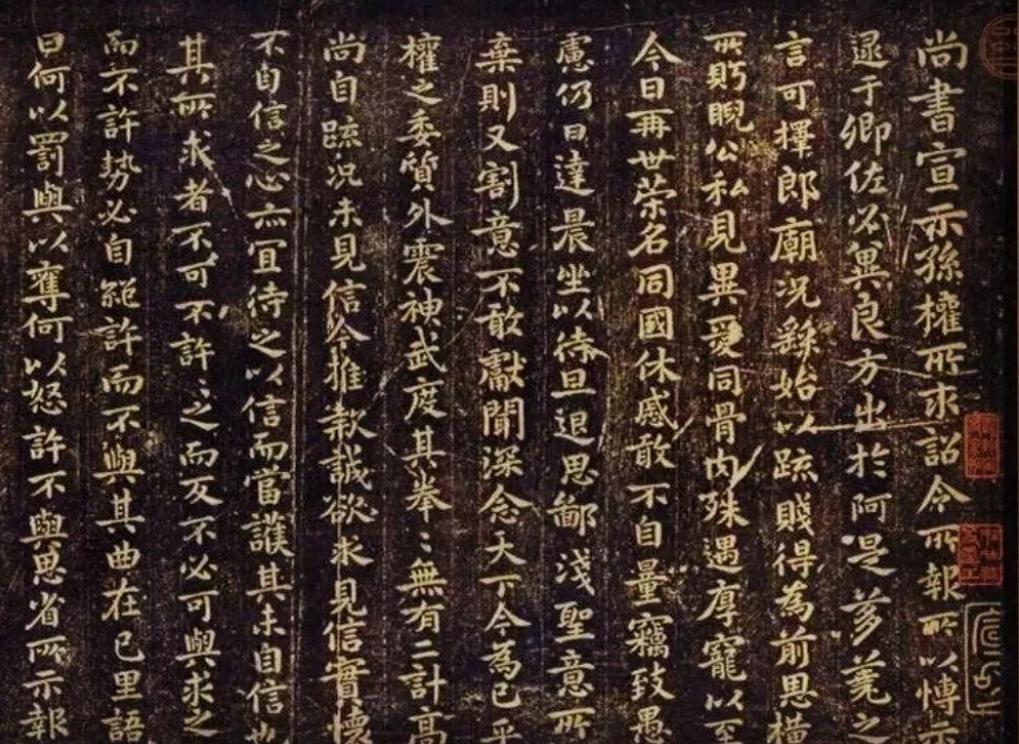 尚書宣示孫權所求詔令所報所以博示
逮于卿佐必冀良方出於阿是芻蕘之
言可擇郎廟況繇始以疏賤得為前恩橫
所眄睨公私見異愛同骨肉殊遇厚寵以至
今日再世榮名同國休慼敢不自量竊致愚
慮仍日達晨坐以待旦退思鄙淺聖意所
棄則又割意不敢獻聞深念天下今為已平
權之委質外震神武度其拳〻無有二計高
尚自疏況未見信今推款誠欲求見信實懷
不自信之心亦宜待之以信而當護其未自信也
其所求者不可不許〻之而反不必可與求之
而不許勢必自絕許而不與其曲在己里語
曰何以罰與以奪何以怒許不與思省所示報